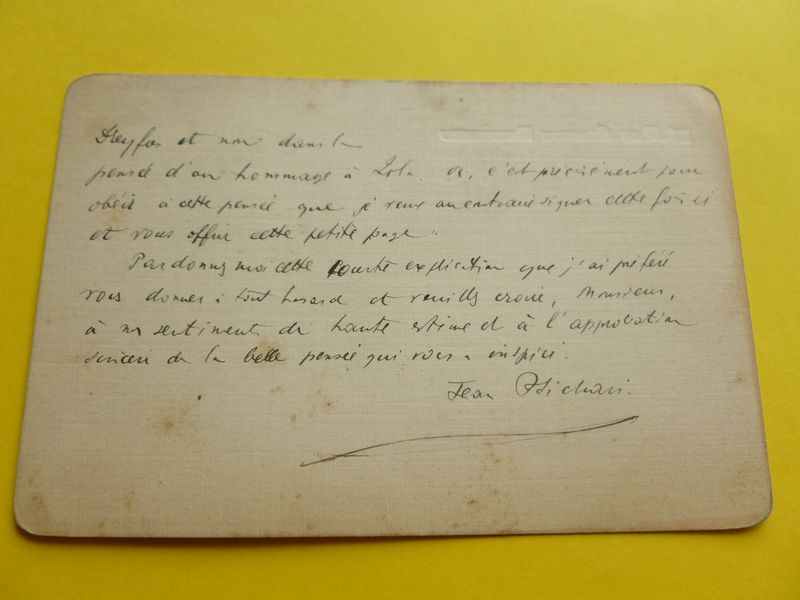 Dreyfus et non dans la
pensée d'un hommage à Zola. Or, c'est précisément pour
obéir à cette pensée que je veux au contraire signer cette fois ci
et vous offrir cette petite page.
Pardonnez moi cette courte explication que j'ai préféré
vous donner à tout hasard et veuillez croire, Monsieur,
à mes sentiments de haute estime et à l'approbation
sincère de la belle pensée qui vous a inspiré.
Jean Psichari.